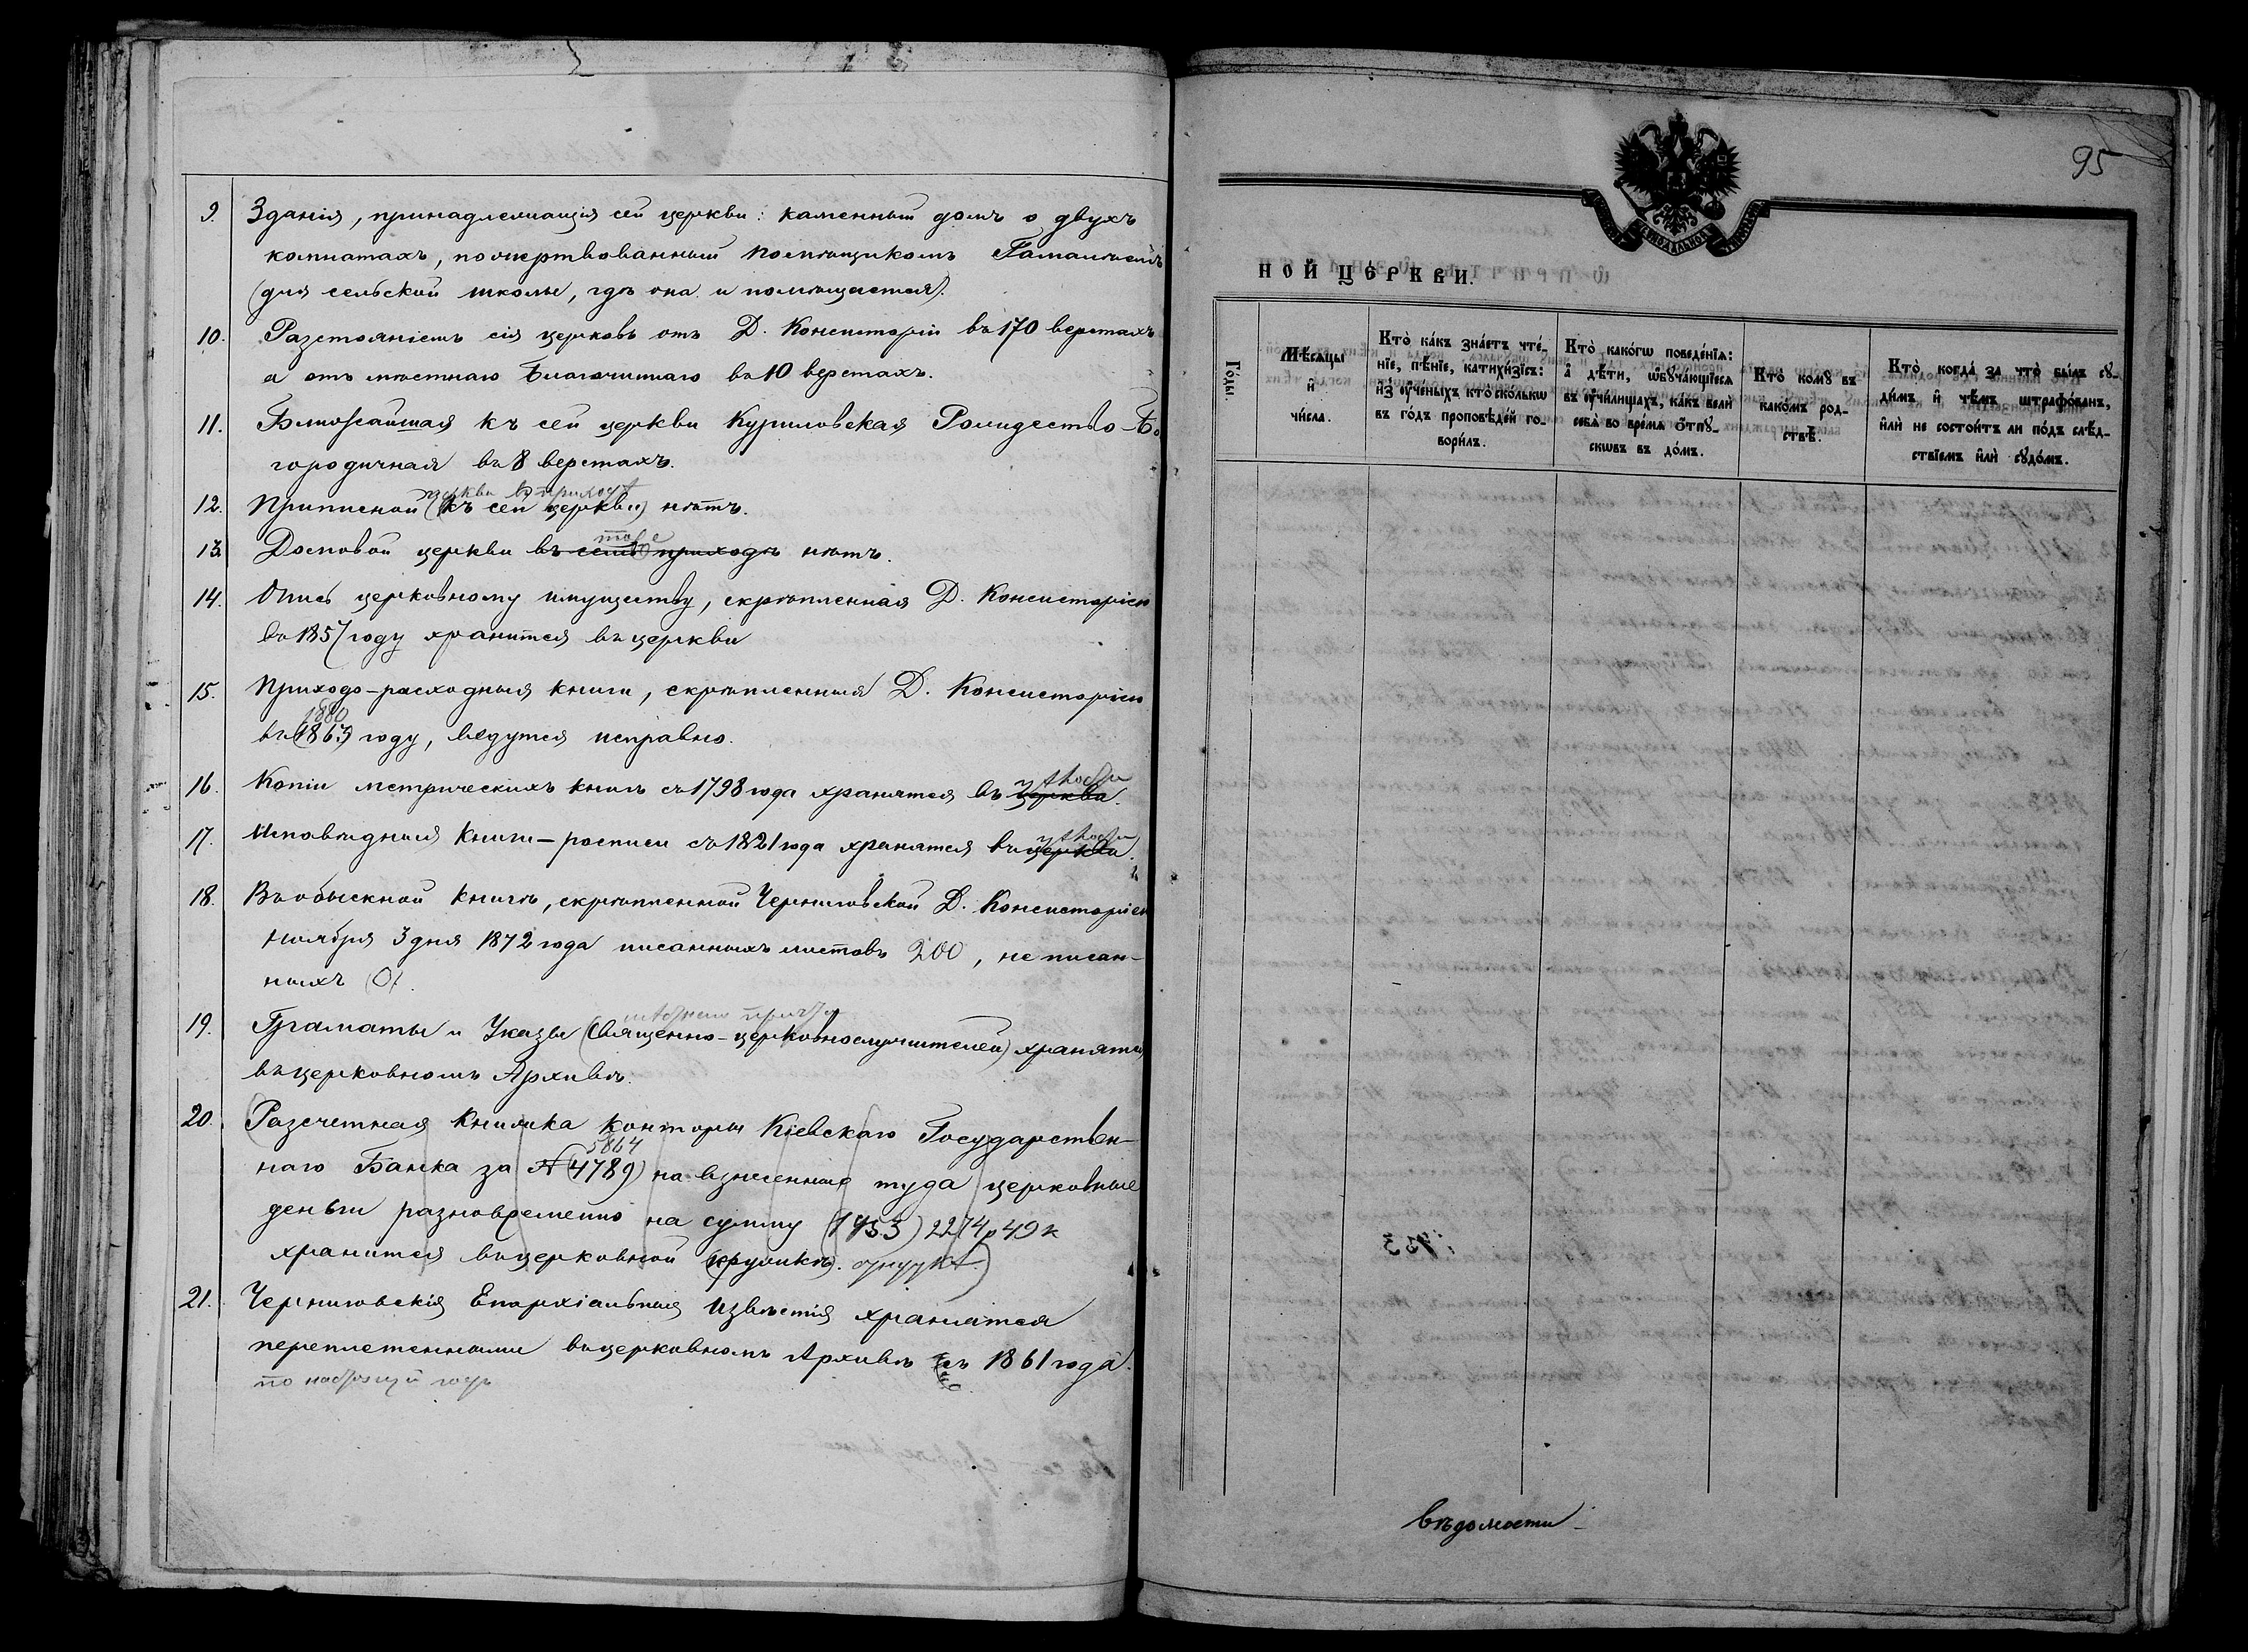 9. Зданія, принадлежащія сей церкви: каменный домъ о двухъ
комнатахъ, пожертвованный помѣщикомъ Гамалѣемъ
(для сельской школы, гдѣ она и помѣщается).
10. Разстояніемъ сія церковь отъ Д. Консисторіи въ 170 верстахъ
а отъ мѣстнаго Благочиннаго въ 10 верстахъ.
11. Ближайшая къ сей церкви Куриловская Рождество-Бо
городичная въ 8 верстахъ.
церкви въ приходѣ
12. Приписной (къ сей церкви) нѣтъ.
тоже
13. Домовой церкви въ семъ приходѣ нѣтъ.
14. Опись церковному имуществу, скрѣпленная Д. Консисторіею
въ 1857 году хранится въ церкви
15. Приходо-расходныя книги, скрѣпленныя Д. Консисторіею
1880
въ (1863) году, ведутся исправно.
16. Копіи метрическихъ книгъ съ 1798 года хранятся въ церкви.
17. Исповѣдныя книги-росписи съ 1821 года хранятся въ церкви.
18. Въ обыскной книгѣ, скрѣпленной Черниговской Д. Консисторіею
Ноября 3 дня 1872 года писанныхъ листовъ 200, не писан-
ныхъ 0.
причта
19. Граматы и Указы (священно-церковнослужителей) хранятся
въ церковномъ Архивѣ.
20. (Разсчетная книжка Конторы Кіевскаго Государствен-
5864
наго Банка за № (4789) на взнесенныя туда церковные
деньги разновременно на сумму (1953) 2274 р 49 к
хранится въ церковной (кружкѣ). сундукѣ.)
21. Черниговскія Епархіальныя Извѣстія хранятся
переплетенными въ церковномъ Архивѣ съ 1861 года.
по настоящій годъ
95
НОЙ ЦЕРКВИ.
Годы.
Мѣсяцы
и҆
чи́сла.
Кто̀ ка́къ зна́етъ чте́-
нїе, пѣ́нїе, катихи́зїсъ:
и҆з̾ ᲂу҆че́ныхъ кто̀ ско́лькѡ
въ го́дъ проповѣ́дей го-
вори́лъ.
Кто̀ како́гѡ поведе́нїѧ:
а҆ дѣ́ти, ѡ҆бꙋча́ющїесѧ
въ ᲂу҆чи́лищахъ, ка́къ велѝ
себѧ̀ во вре́мѧ ѿпꙋ-
сковъ въ до́мъ.
Кто̀ комꙋ̀ въ
како́мъ род-
ствѣ̀.
Кто̀, когда̀ за что̀ бы́лъ сꙋ-
ди́мъ и҆ чѣ́мъ штрафо́ванъ,
и҆лѝ не состои́тъ ли по́дъ слѣ́д-
ствїемъ и҆лѝ сꙋдо́мъ.
вѣдомости